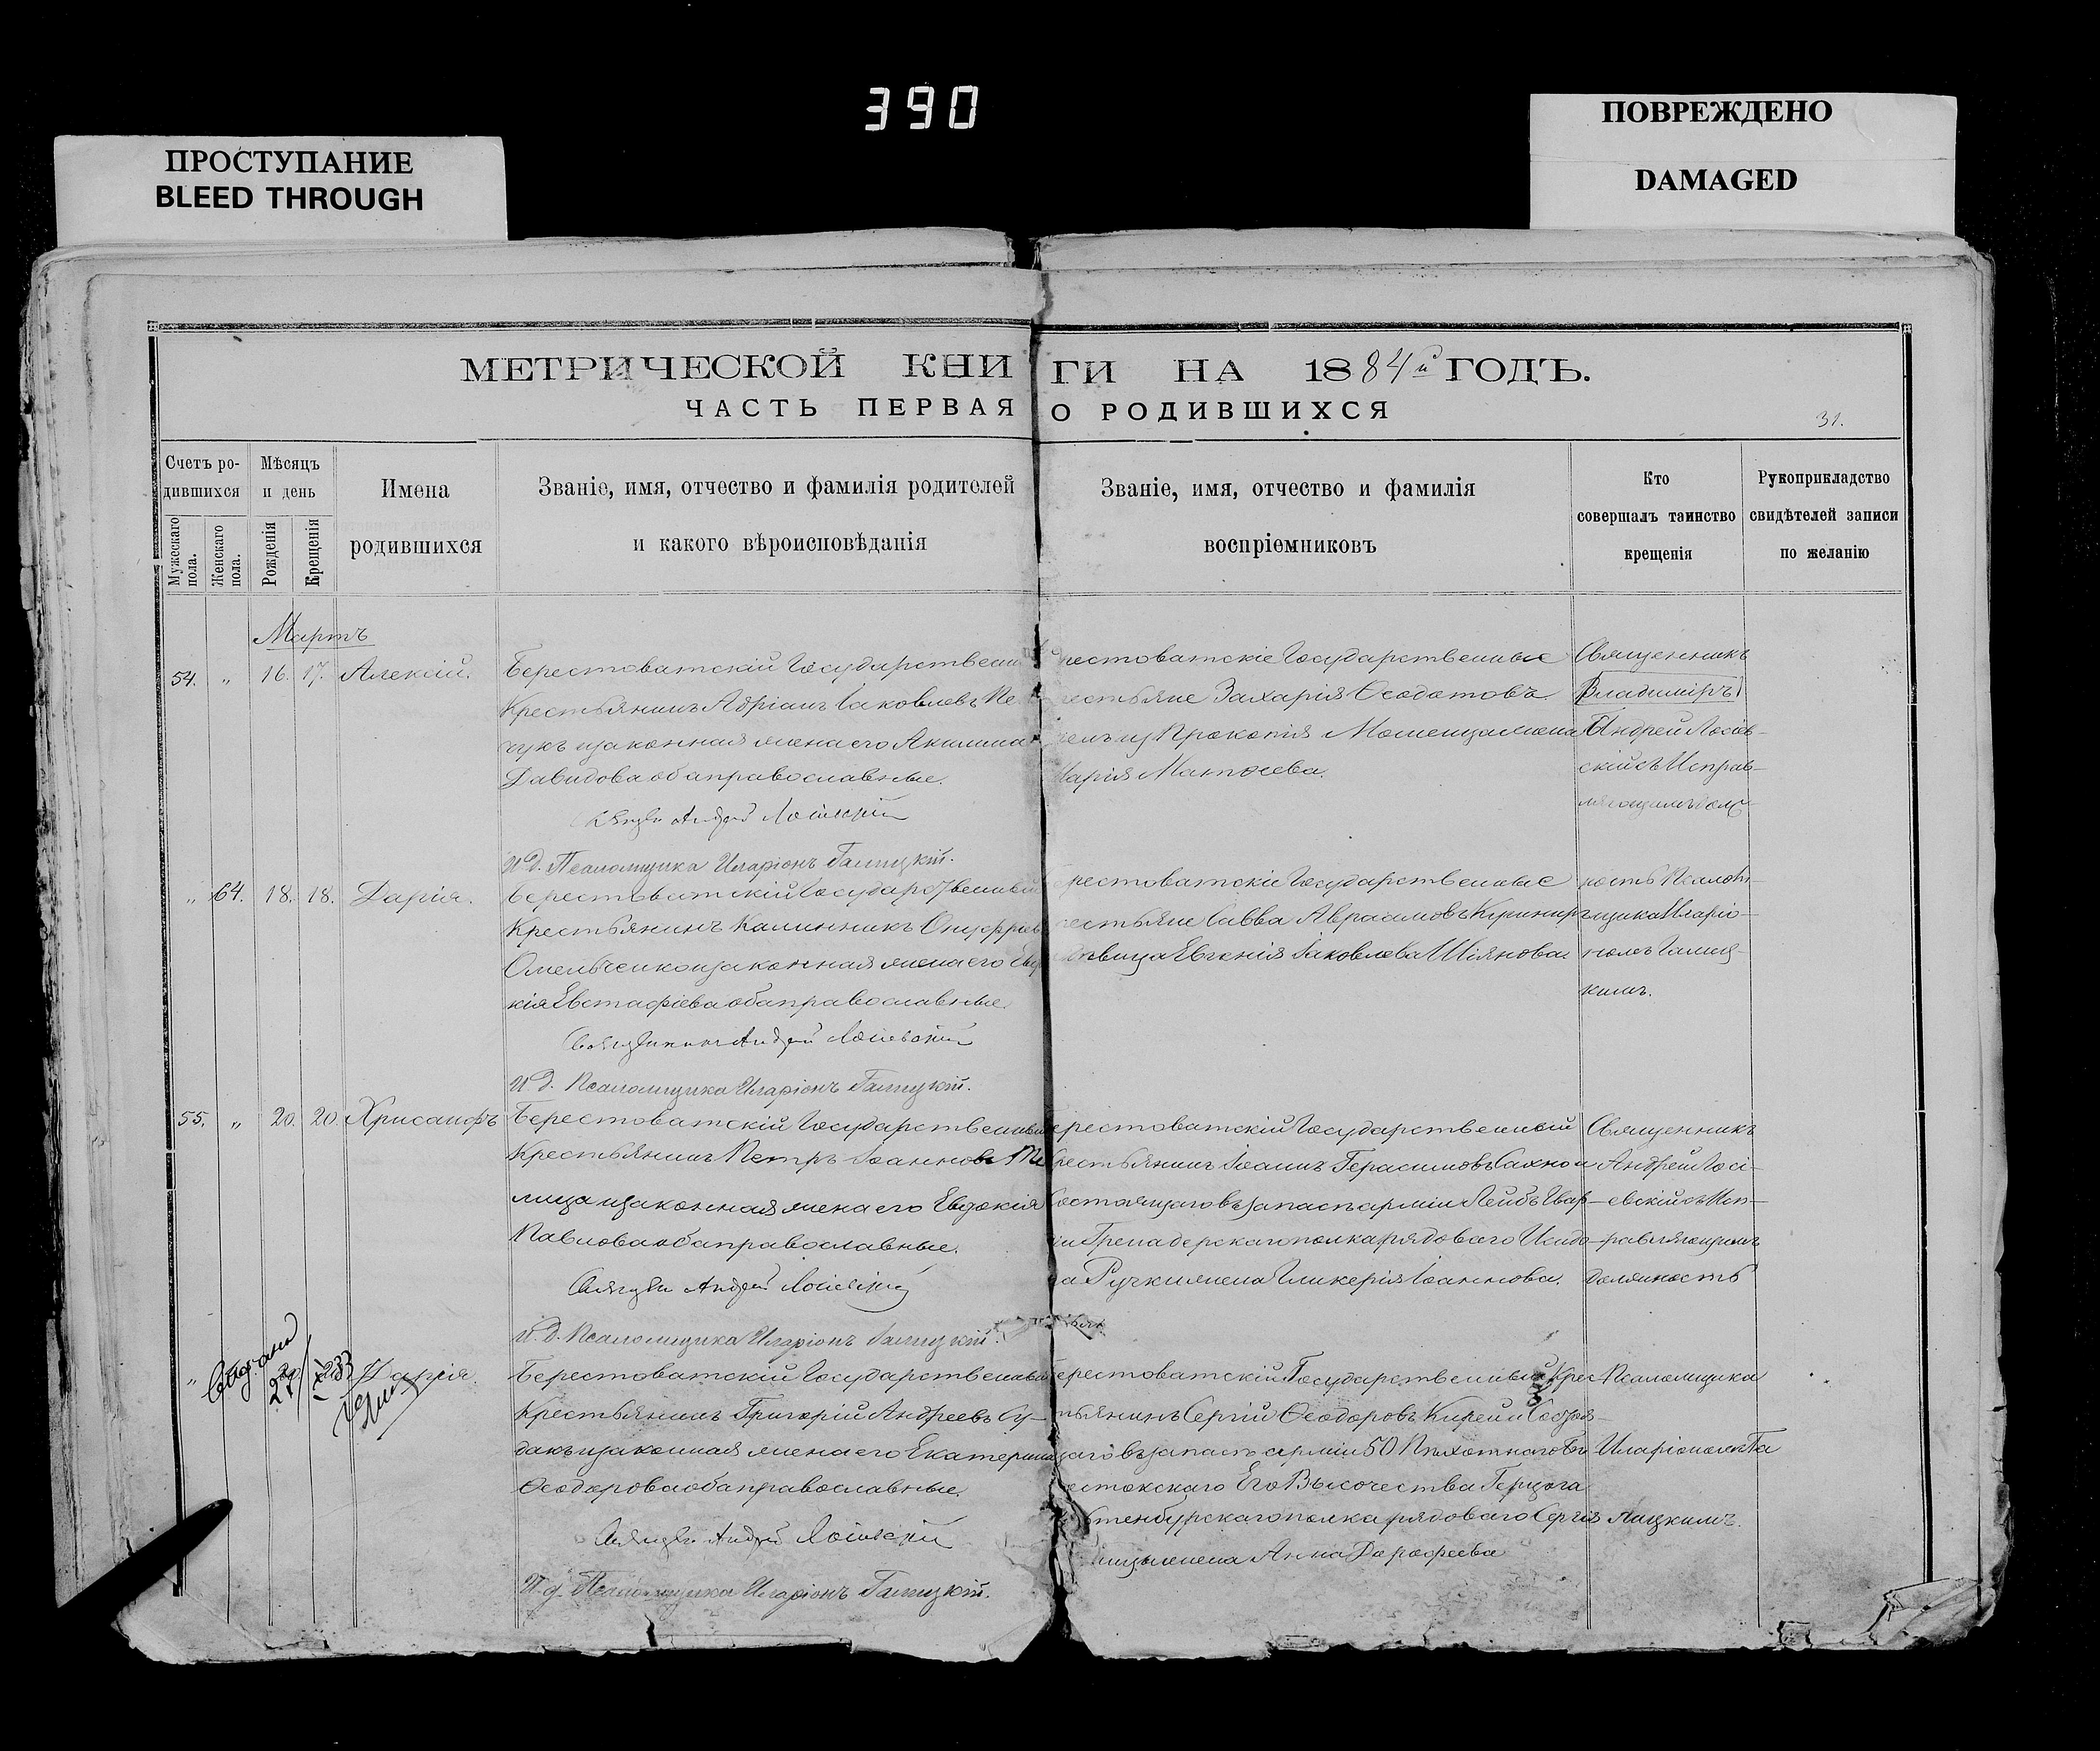 390
ПРОСТУПАНИЕ
BLEED THROUGH
ПОВРЕЖДЕНО
DAMAGED
МЕТРИЧЕСКОЙ КНИГИ НА 1884й ГОДЪ.
ЧАСТЬ ПЕРВАЯ О РОДИВШИХСЯ
31.
Счетъ ро-
дившихся
Мужескаго пола.
Женскаго пола.
Мѣсяцъ
и день
Рожденія
Крещенія
Имена
родившихся
Званіе, имя, отчество и фамилія родителей
и какого вѣроисповѣданія
Званіе, имя, отчество и фамилія
воспріемниковъ
Кто
совершалъ таинство
крещенія
Рукоприкладство
свидѣтелей записи
по желанію
Мартъ
54. „ 16. 17. Алексій.
Берестоватскій Государствен
Крестьянинъ Адріанъ Іаковлевъ Пе
чукъ и законная жена его Акилина
Давидова оба православные.
Андрей Лосіевскій
И. д. Псаломщика Иларіонъ Галицкій.
рестоватскіе Государственные
рестьяне Захарія Ѳеодотовъ
Прокопія жена
Марія
Священникъ
Владиміръ
Андрей Лосіев-
скій съ Исправ-
ляющимъ долж
„ 64. 18. 18. Дарія.
Берестоватскій Государственный
Крестьянинъ Каллиникъ Онуфріев
Омельченко и законная жена его Евдо
кія Евстафіева оба православные.
Священникъ Андрей Лосіевскій
И. д. Псаломщика Иларіонъ Галицкій.
рестоватскіе Государственные
рестьяне Савва Авраамовъ
дѣвица Евгенія Іаковлева Шіянова
ность Псалом-
щика Иларіо-
номъ Галиц-
кимъ.
55. „ 20. 20. Хрисанфъ
Берестоватскій Государственный
Крестьянинъ Петръ Іоанновъ Те
лица и законная жена его Евдокія
Павлова оба православные.
Андрей Лосіевскій
И. д. Псаломщика Иларіонъ Галицкій.
ерестоватскій Государственный
рестьянинъ Іоаннъ Герасимовъ Сахно и
состоящаго въ запасѣ арміи Лейбъ Гвар-
іи Гренадерскаго полка рядоваго Исидо-
а Ручки жена Гликерія Іоаннова.
Священникъ
Андрей Лосі-
евскій съ Исп-
равляющимъ
должность
„ Дарія.
Берестоватскій Государственный
Крестьянинъ Григорій Андреевъ Су-
дакъ и законная жена его Екатерина
Ѳеодорова оба православные.
Андрей Лосіевскій
И. д. Псаломщика Иларіонъ Галицкій.
ерестоватскій Государственный Крес
тьянинъ Сергій Ѳеодоровъ Кирей и Состоя-
щаго въ запасѣ арміи 50 Пѣхотнаго Бѣ
лостокскаго Его Высочества Герцога
тенбургскаго полка рядоваго Сергія
жена Анна Дорофеева
Псаломщика
Иларіономъ Га
лицкимъ.